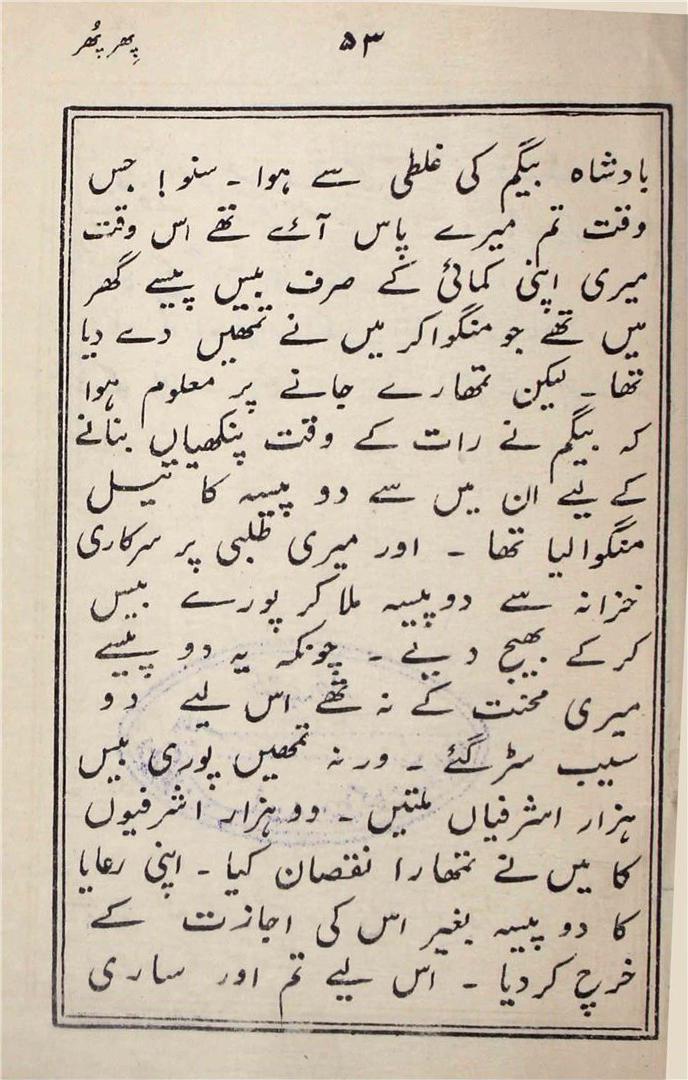 پھر پُھر
۵۳
بادشاہ بیگم کی غلطی سے ہوا ۔ سنو ! جس
وقت تم میرے پاس آئے تھے اس وقت
میری اپنی کمائی کے صرف بیس پیسے گھر
میں تھے جو منگواکر میں نے تمھیں دے دیا
تھا ۔ لیکن تمھارے جانے پر معلوم ہوا
کہ بیگم نے رات کے وقت پنکھیاں بنانے
کے لیے ان میں سے دو پیسہ کا تیل
منگوالیا تھا ۔ اور میری طلبی پر سرکاری
خزانہ سے دوپیسہ ملا کر پورے بیس
کرکے بھیج دیے ۔ چونکہ یہ دو پیسے
میری محنت کے نہ تھے اس لیے دو
سیب سڑگئے ۔ ورنہ تمھیں پوری بیس
ہزار اشرفیاں ملتیں ۔ دوہزار اشرفیوں
کا میں نے تمھارا نقصان کیا ۔ اپنی رعایا
کا دو پیسہ بغیر اس کی اجازت کے
خرچ کردیا ۔ اس لیے تم اور ساری